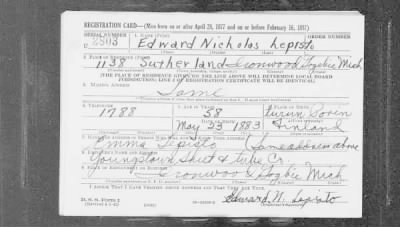 REGISTRATION CARD—(Men born on or after April 28, 1877 and on or before February 16, 1897)
SERIAL NUMBER 1. NAME (Print) ORDER NUMBER
2803 Edward Nicholas Lepisto
2. PLACE OF RESIDENCE (Print)
1138 Sutherland Ironwood Gogebic Mich
[THE PLACE OF RESIDENCE GIVEN ON THE LINE ABOVE WILL DETERMINE LOCAL BOARD
JURISDICTION; LINE 2 OF REGISTRATION CERTIFICATE WILL BE IDENTICAL]
3. MAILING ADDRESS
Same
4. TELEPHONE 5. AGE IN YEARS 6. PLACE OF BIRTH
1788 58
DATE OF BIRTH
May 23 1883 Finland
7. NAME AND ADDRESS OF PERSON WHO WILL ALWAYS KNOW YOUR ADDRESS
Emma Lepisto (Same address above
8. EMPLOYER'S NAME AND ADDRESS
Youngstown Sheet & Tube Co.
9. PLACE OF EMPLOYMENT OR BUSINESS
Ironwood Gogebic Mich
I AFFIRM THAT I HAVE VERIFIED ABOVE ANSWERS AND THAT THEY ARE TRUE.
D. S. S. Form 1
Edward N. Lepisto